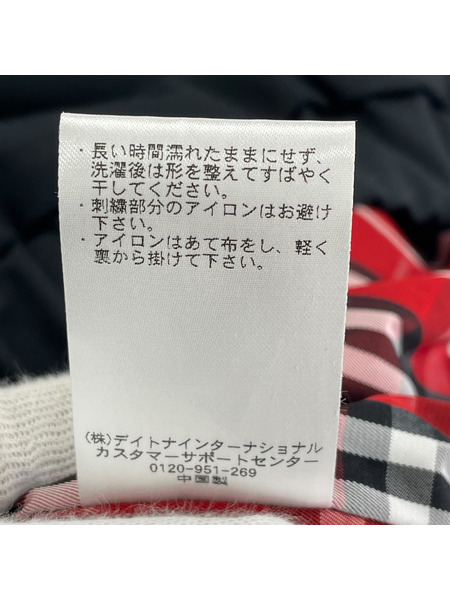 ・長い時間濡れたままにせず、
洗濯後は形を整えてすばやく
干してください。
・刺繍部分のアイロンはお避け
下さい。
・アイロンはあて布をし、軽く
裏から掛けて下さい。
(株)デイトナインターナショナル
カスタマーサポートセンター
0120-951-269
中国製